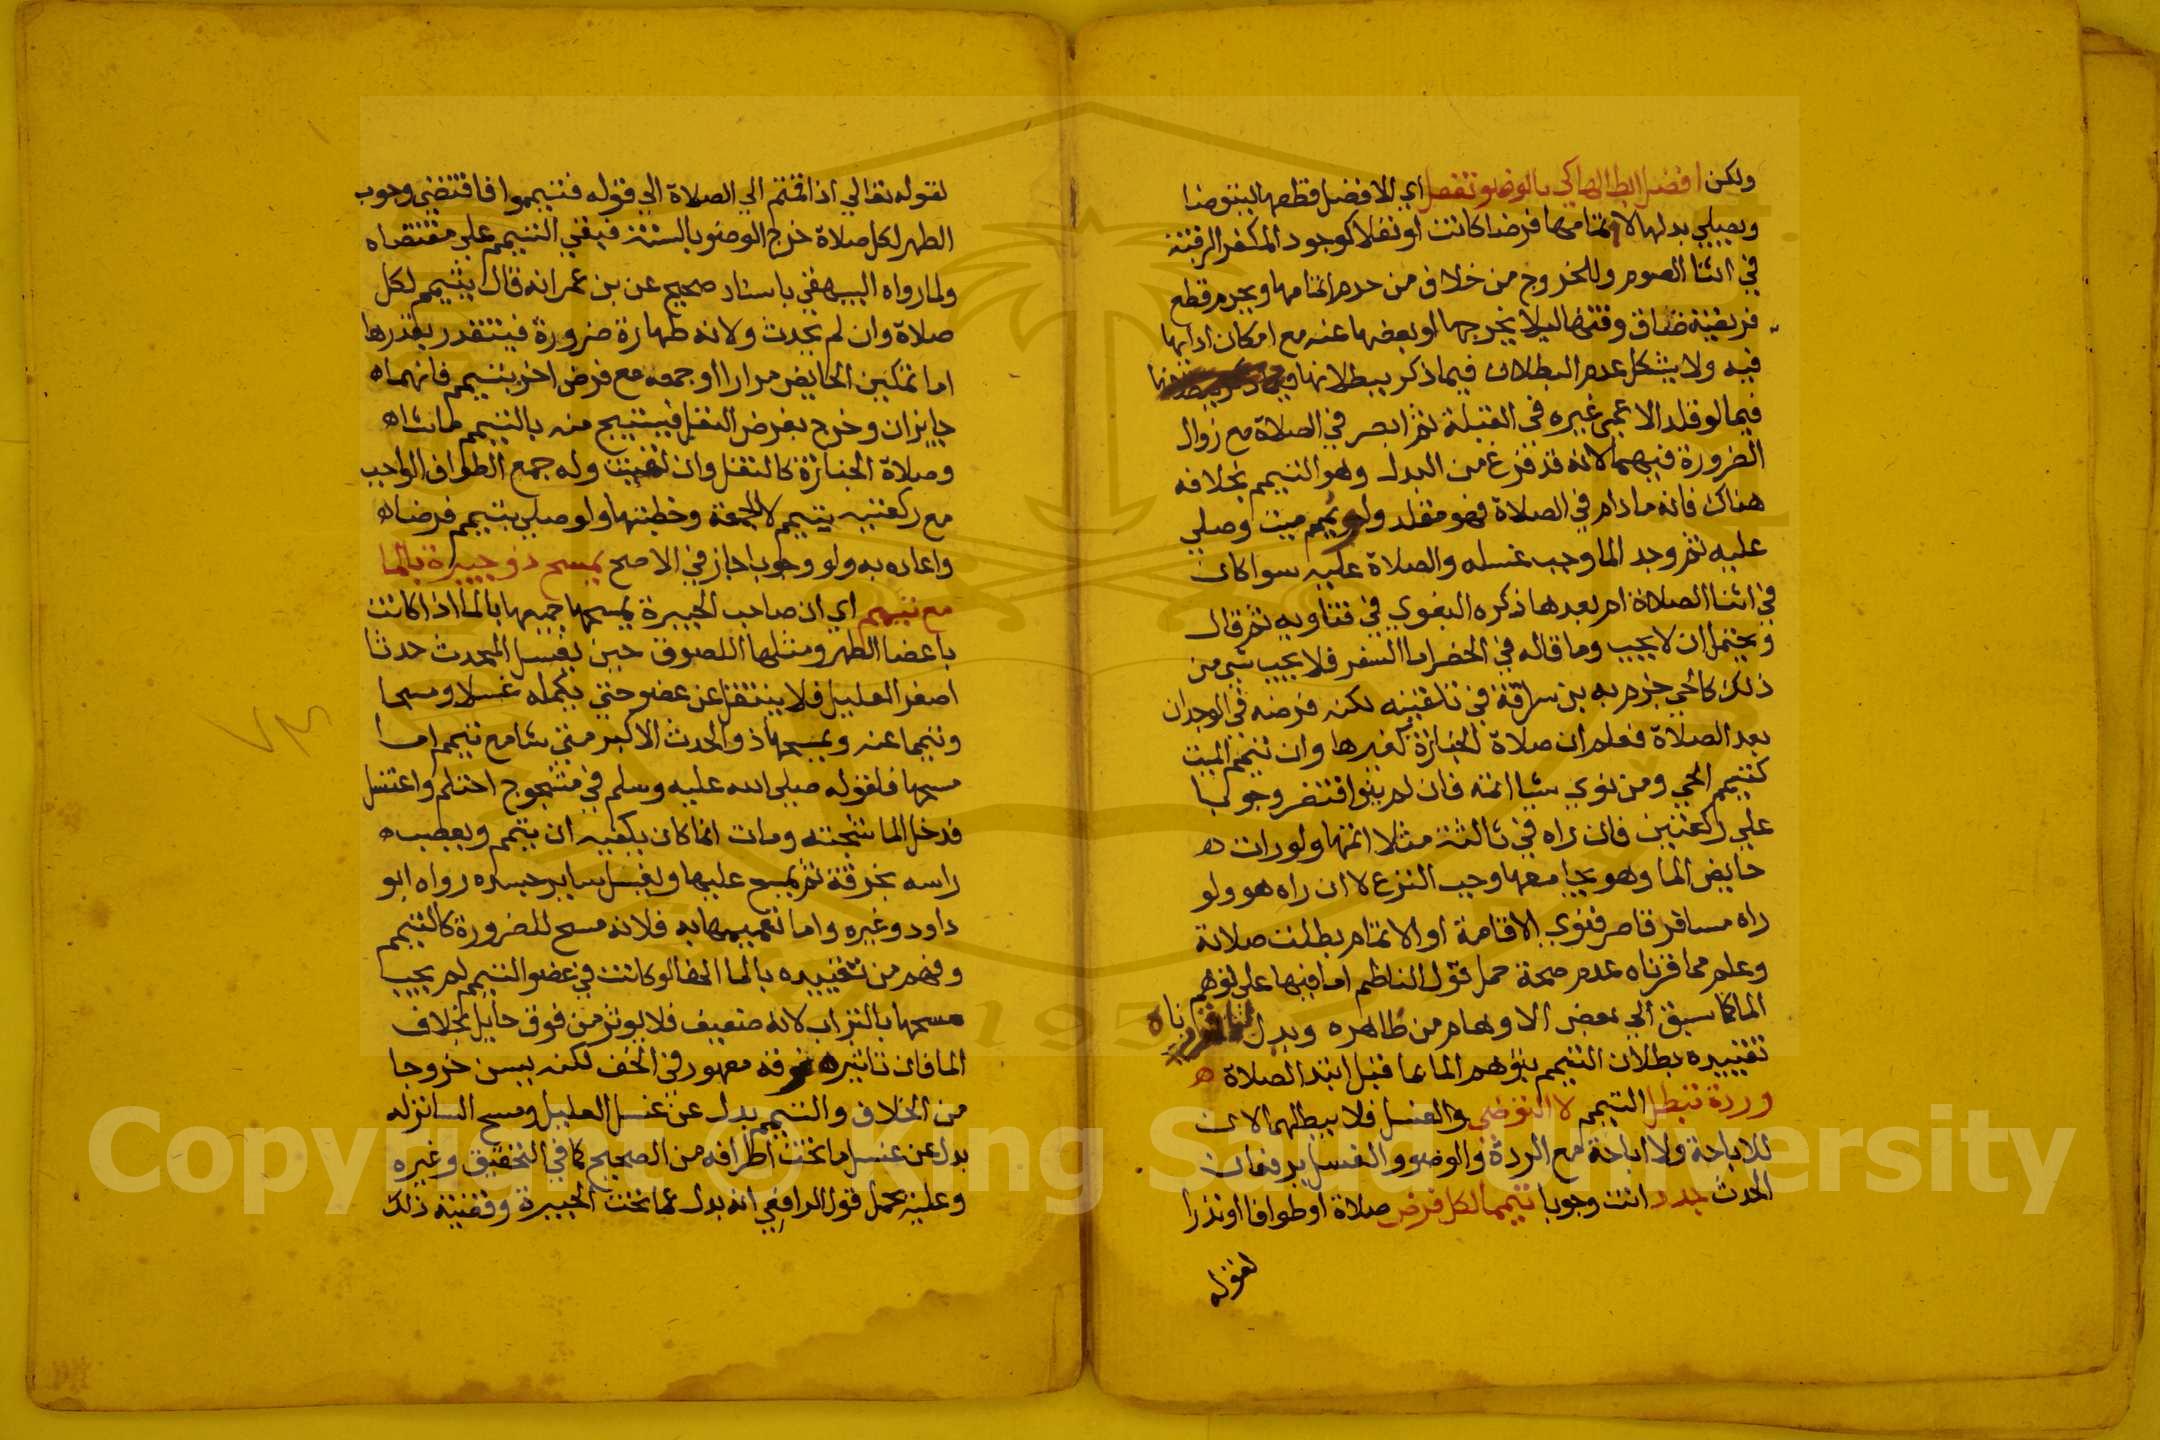 ولكن افضل ابطالها كي بالوضو تفعل اي الافضل قطعها ليتوضا
ويصلي بدلها لا اتمامها فرضا كانت او نفلا كوجود المكفر الرقبة
في اثنا الصوم وللخروج من خلاف من حرم اتمامها ويحرم قطع
فريضة ضاق وقتها ليلا يخرجها او بعضها عنه مع امكان ادايها
فيه ولا يشكل عدم البطلان فيما ذكر ببطلانها
فيما لو قلد الاعمى غيره في القبلة ثم ابصر في الصلاة مع زوال
الضرورة فيهما لانه قد فرغ من البدل وهو التيمم بخلافه
هناك فانه مادام في الصلاة فهو مقلد ولو يمم ميت وصلي
عليه ثم وجد الما وجب غسله والصلاة عليه سوا كان
في اثنا الصلاة ام بعدها ذكره البغوي في فتاويه ثم قال
ويحتمل ان لا يجب وما قاله في الحضر اما السفر فلا يجب شي من
ذلك كالحي جزم به بن سراقة في تلقينه لكنه فرضه في الوجدان
بعد الصلاة فعلم ان صلاة الجنازة كغيرها وان تيمم الميت
كتيمم الحي ومن نوي شيا اتمه فان لم ينو اقتصر وجوبا
علي ركعتين فان راه في ثالثة مثلا اتمها ولو رات ه
حايض الما وهو يجامعها وجب النزع لا ان راه هو ولو
راه مسافر قاصر فنوي الاقامة او الاتمام بطلت صلاته
وعلم مما قررناه عدم صحة حمل قول الناظم اما فيها علي توهم
الما كما سبق الي بعض الاوهام من ظاهره ويدل لما قررناه
تقييده بطلان التيمم بتوهم الما بما قبل ابتدا الصلاة ه
وردة تبطل التيمم لا التوضي والغسل فلا يبطلهما لان
للاباحة ولا اباحة مع الردة والوضو والغسل يرفعان
الحدث جدد انت وجوبا تيمما لكل فرض صلاة او طوافا او نذرا
لقوله
لقوله تعالي اذا قمتم الي الصلاة الي قوله فتيمموا فاقتضي وجوب
الطهر لكل صلاة خرج الوضو بالسنة فبقي التيمم علي مقتضاه
ولما رواه البيهقي باسناد صحيح عن بن عمر انه قال يتيمم لكل
صلاة وان لم يحدث ولانه طهارة ضرورة فيتقدر بقدرها
اما تمكين الحايض مرارا او جمعه مع فرض اخر بتيمم فانهما ه
جايزان وخرج بفرض النفل فيستبيح منه بالتيمم ما شاه
وصلاة الجنازة كالنفل وان تعينت وله جمع الطواف الواجب
مع ركعتيه بتيمم لا الجمعة وخطبتها ولو صلي بتيمم فرضا ه
واعاده به ولو وجوبا جاز في الاصح يمسح ذو جبيرة بالما
مع تيمم اي ان صاحب الجبيرة يمسحها جميها بالما اذا كانت
باعضا الطهر ومثلها اللصوق حين يغسل المحدث حدثا
اصغر العليل فلا ينتقل عن عضو حتي يكمله غسلا ومسحا
وتيمما عنه ويمسحها ذو الحدث الاكبر متي شا مع تيمم اما
مسحها فلقوله صلي الله عليه وسلم في مشجوج احتلم واغتسل
فدخل الما شجته ومات انما كان يكفيه ان يتيمم ويعصب ه
راسه بخرقة ثم يمسح عليها ويغسل ساير جسده رواه ابو
داود وغيره واما تعميمها به فلانه مسح للضرورة كالتيمم
وفهم من تقييده بالما انها لو كانت في عضو التيمم لم يجب
مسحها بالتراب لانه ضعيف فلا يوثر من فوق حايل بخلاف
الما فان تاثيره فوقه معهود في الخف لكنه يسن خروجا
من الخلاف والتيمم بدل عن غسل العليل ومسح الساتر له
بدل عن غسل ما تحت اطرافه من الصحيح كما في التحقيق وغيره
وعليه يحمل قول الرافعي انه بدل عما تحت الجبيرة وقضية ذلك
Copyright © King Saud University